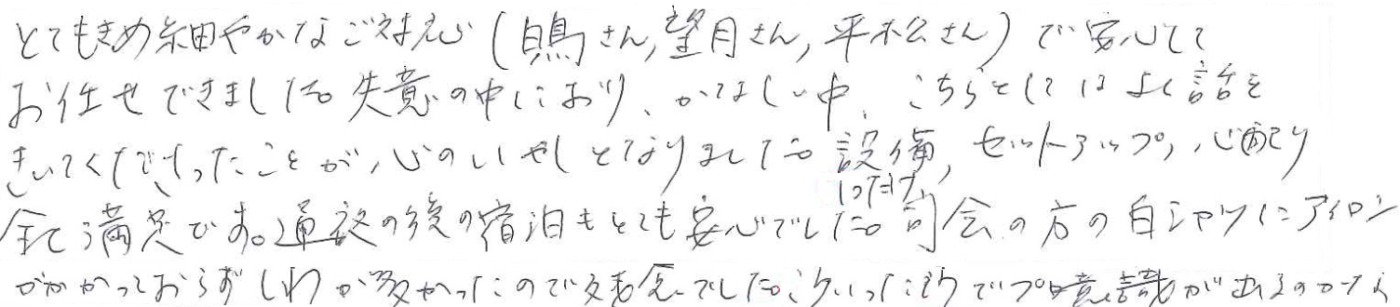 とてもきめ細やかなご対応(白鳥さん,望月さん,平松さん)で安心して
お任せできました。失意の中におり、かなしい中、こちらとしてはよく話を
きいてくださったことが心のいやしとなりました。設備,セットアップ,心配り
全て満足です。通夜の後の宿泊もとても安心でした。1つだけ,司会の方の白シャツにアイロン
がかかっておらずしわが多かったので残念でした。こういった所でプロ意識があるのかな